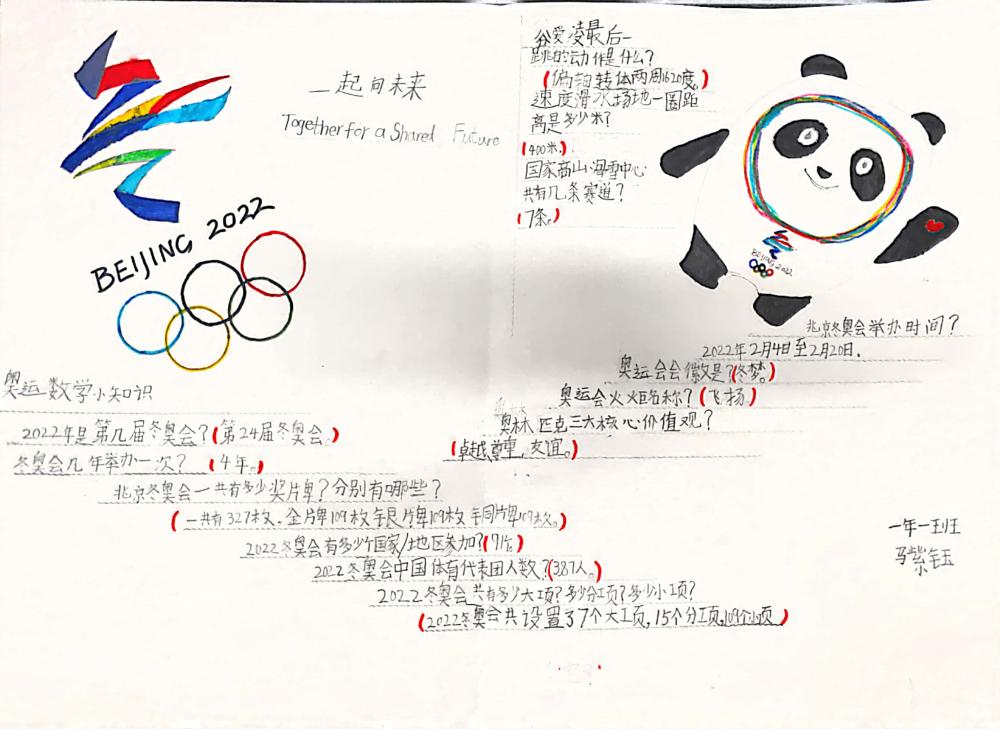 一起向未来
Together for a Shared Future
BEIJING 2022
谷爱凌最后一
跳的动作是什么?
(偏轴转体两周1620度。)
速度滑冰场地一圈距
离是多少米?
(400米。)
国家高山滑雪中心
共有几条赛道?
(7条。)
BEIJING 2022
北京冬奥会举办时间?
2022年2月4日至2月20日.
奥运会会徽是?(冬梦。)
奥运会火炬名称?(飞扬.)
奥林匹克三大核心价值观?
(卓越,尊重,友谊。)
奥运数学小知识
2022年是第几届冬奥会?(第24届冬奥会.)
冬奥会几年举办一次? (4年。)
北京冬奥会一共有多少奖片卑?分别有哪些?
(一共有327枚.金牌109枚银片卑109枚铜片卑109枚。)
2022冬奥会有多少个国家/地区参加?(91个。)
2022冬奥会中国体育代表团人数?(387人。)
2022冬奥会共有多少大项?多少分项?多少小项?
(2022冬奥会共设置37个大项,15个分项,109个小项)
一年一班
马紫钰